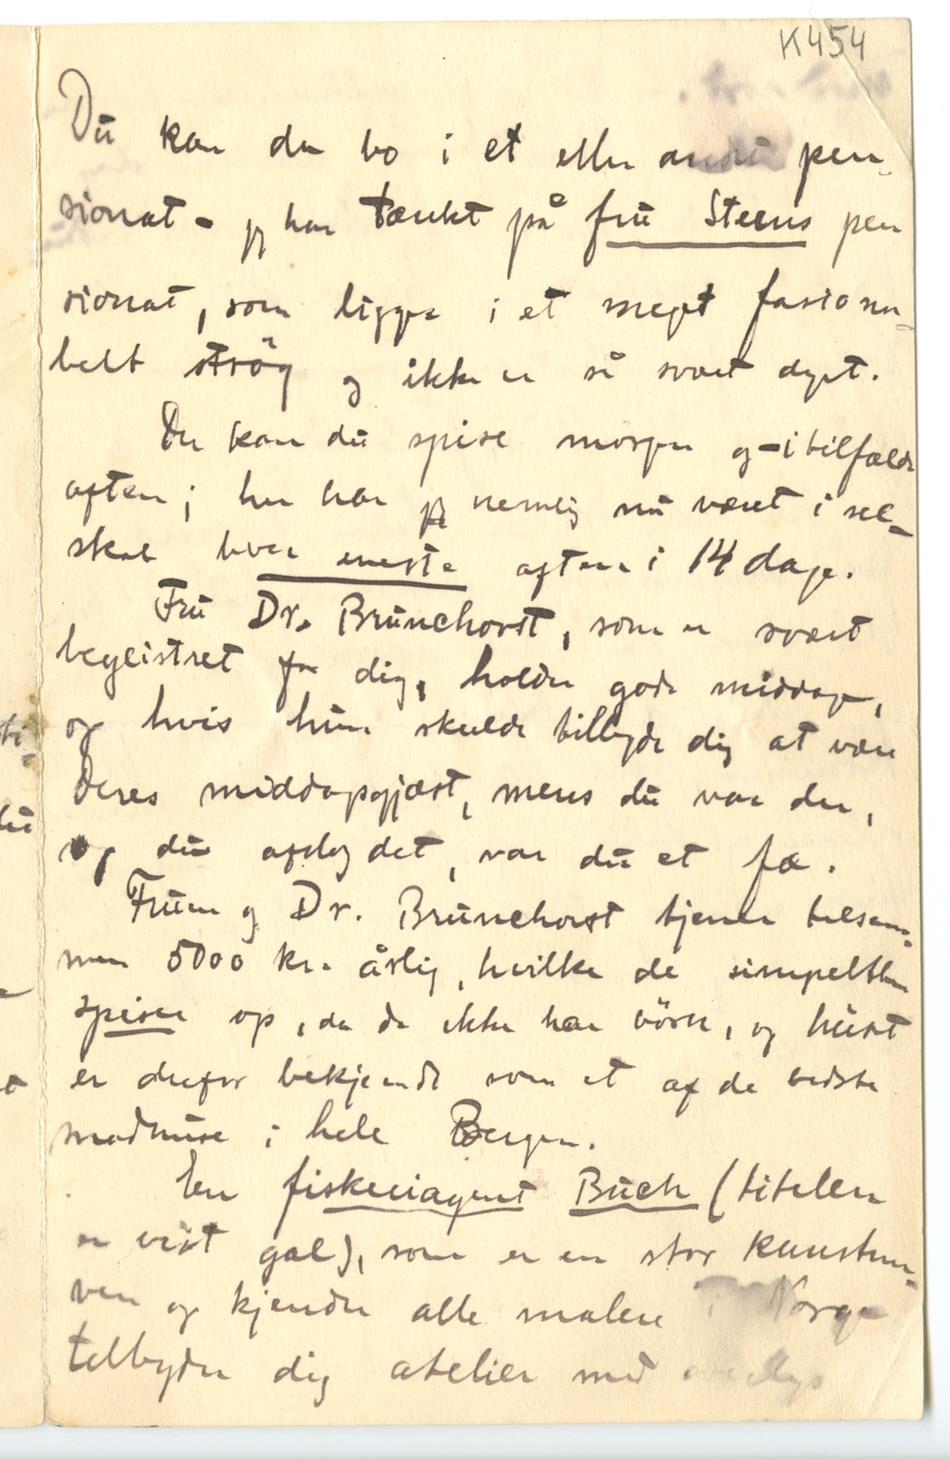 K454
Du kan da bo i et eller andet pen-
sionat – jeg har tænkt på fru Steens pen
sionat, som ligger i et meget fasiona-
belt strøg og ikke er så svært dyrt.
Der kan du spise morgen og – i tilfælde
aften; her har jeg nemlig nu været i sel-
skab hver eneste aften i 14 dage.
Fru Dr. Brunchorst, som er svært
begeistret for dig, holder gode middage,
og hvis hun skulde tilbyde dig at være
deres middagsgjæst, mens du var der,
og du afslog det, var du et fæ.
Fruen og Dr. Brunchorst tjener tilsam-
men 5000 kr. årlig, hvilke de simpelthen
spiser op, da de ikke har börn, og huset
er derfor bekjendt som et af de bedste
madhuse i hele Bergen.
En fiskeriagent Buch (titelen
er vist gal), som er en stor kunstner-
ven og kjender alle malere i Norge
tilbyder dig atelier med overlys
ti-